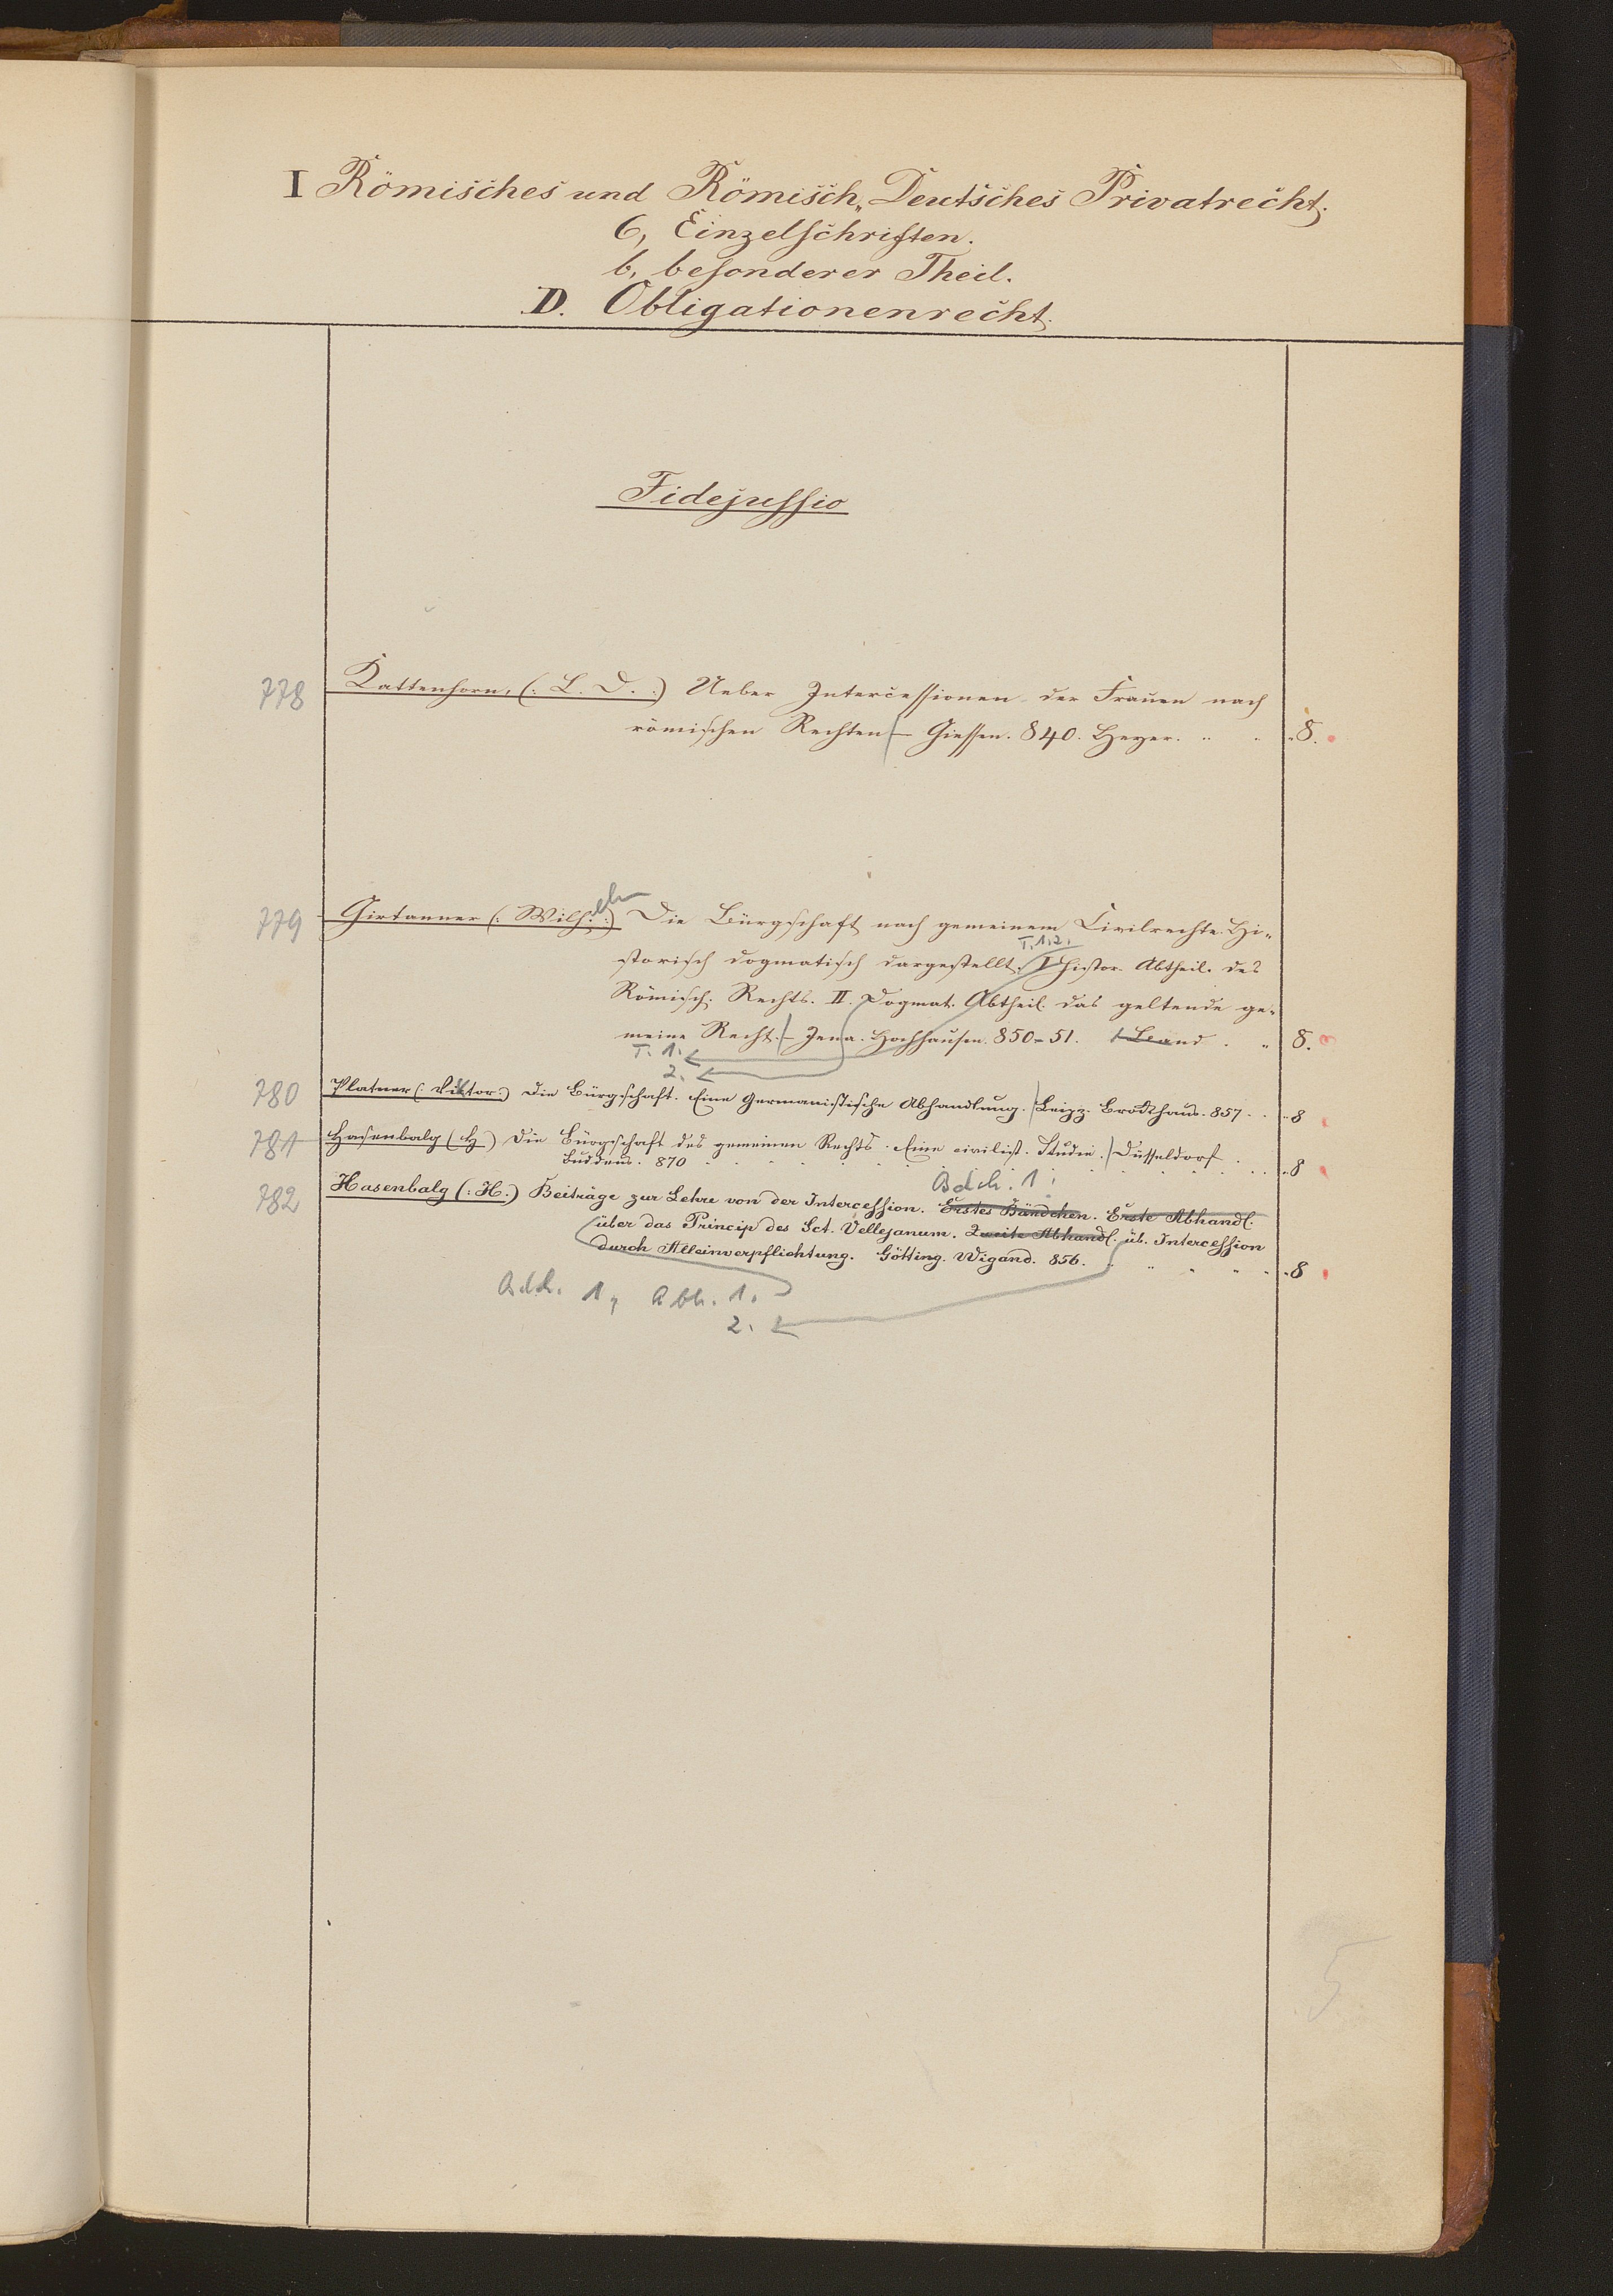 I Römisches und Römisch„Deutsches Privatrecht.
6, Einzelschriften.
b, besonderer Theil.
D. Obligationenrecht.
Fidejussio
778 Kattenhorn, (: L. D. :) Ueber Intercessionen der Frauen nach
römischen Rechten — Giessen. 840. Heyer. „ „ „ 8.
elm
779 Girtanner (: Wilh. :) Die Bürgschaft nach gemeinem Civilrechte. Hi-
T. 1. 2.
storisch dogmatisch dargestellt. I histor. Abtheil. des
Römisch. Rechts. II. Dogmat. Abtheil. das geltende ge-
meine Recht. — Jena. Hochhausen. 850–51. 1 Band . „ 8.
T. 1.
2.
780 Platner (: Viktor :) Die Bürgschaft. Eine Germanistische Abhandlung. Leipz. Brockhaus. 857 . . „ 8
781 Hasenbalg (H) Die Bürgschaft des gemeinen Rechts. Eine civilist. Studie. Düsseldorf .
Buddeus. 870 . . . . „ 8
Bdch. 1.
782 Hasenbalg (: H. :) Beiträge zur Lehre von der Intercession. Erstes Bändchen. Erste Abhandl.
über das Princip des Sct. Vellejanum. Zweite Abhandl. üb. Intercession
durch Alleinverpflichtung. Götting. Wigand. 856. „ „ „ „ „ 8
Bdch. 1, Abh. 1.
2.
5